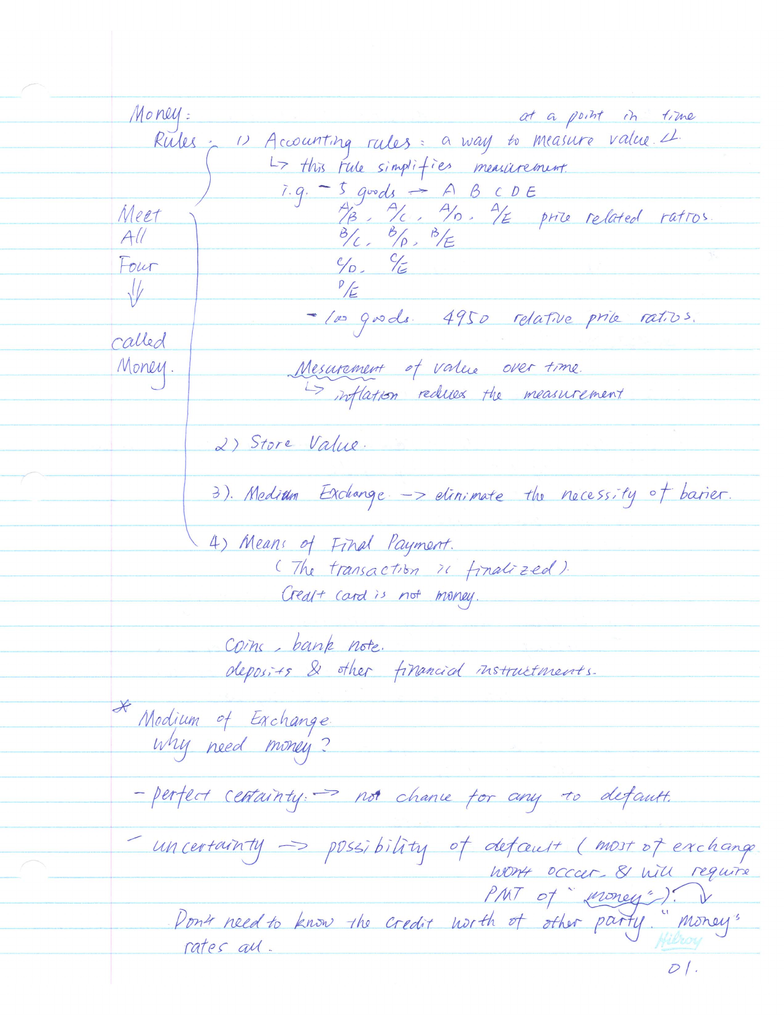 Money:
at a point in time
Rules. 1) Accounting rules: a way to measure value.
↳ this rule simplifies measurement.
i.g. - 5 goods → A B C D E
Meet A/B, A/C, A/D, A/E price related ratios.
All B/C, B/D, B/E
Four C/D, C/E
⇓ D/E
- 100 goods. 4950 relative price ratios.
called
Money. Mesurement of value over time.
↳ inflation reduces the measurement
2) Store Value.
3). Medium Exchange → eliminate the necessity of barier.
4) Means of Final Payment.
(The transaction is finalized).
Credit card is not money.
Coins, bank note.
deposits & other financial instructments.
* Modium of Exchange
why need money?
- perfect certainty. → not chance for any to default.
- uncertainty → possibility of default (most of exchange
won't occur. & will require
PMT of "money").
Don't need to know the credit worth of other party. "money"
rates all.
Hilroy
01.